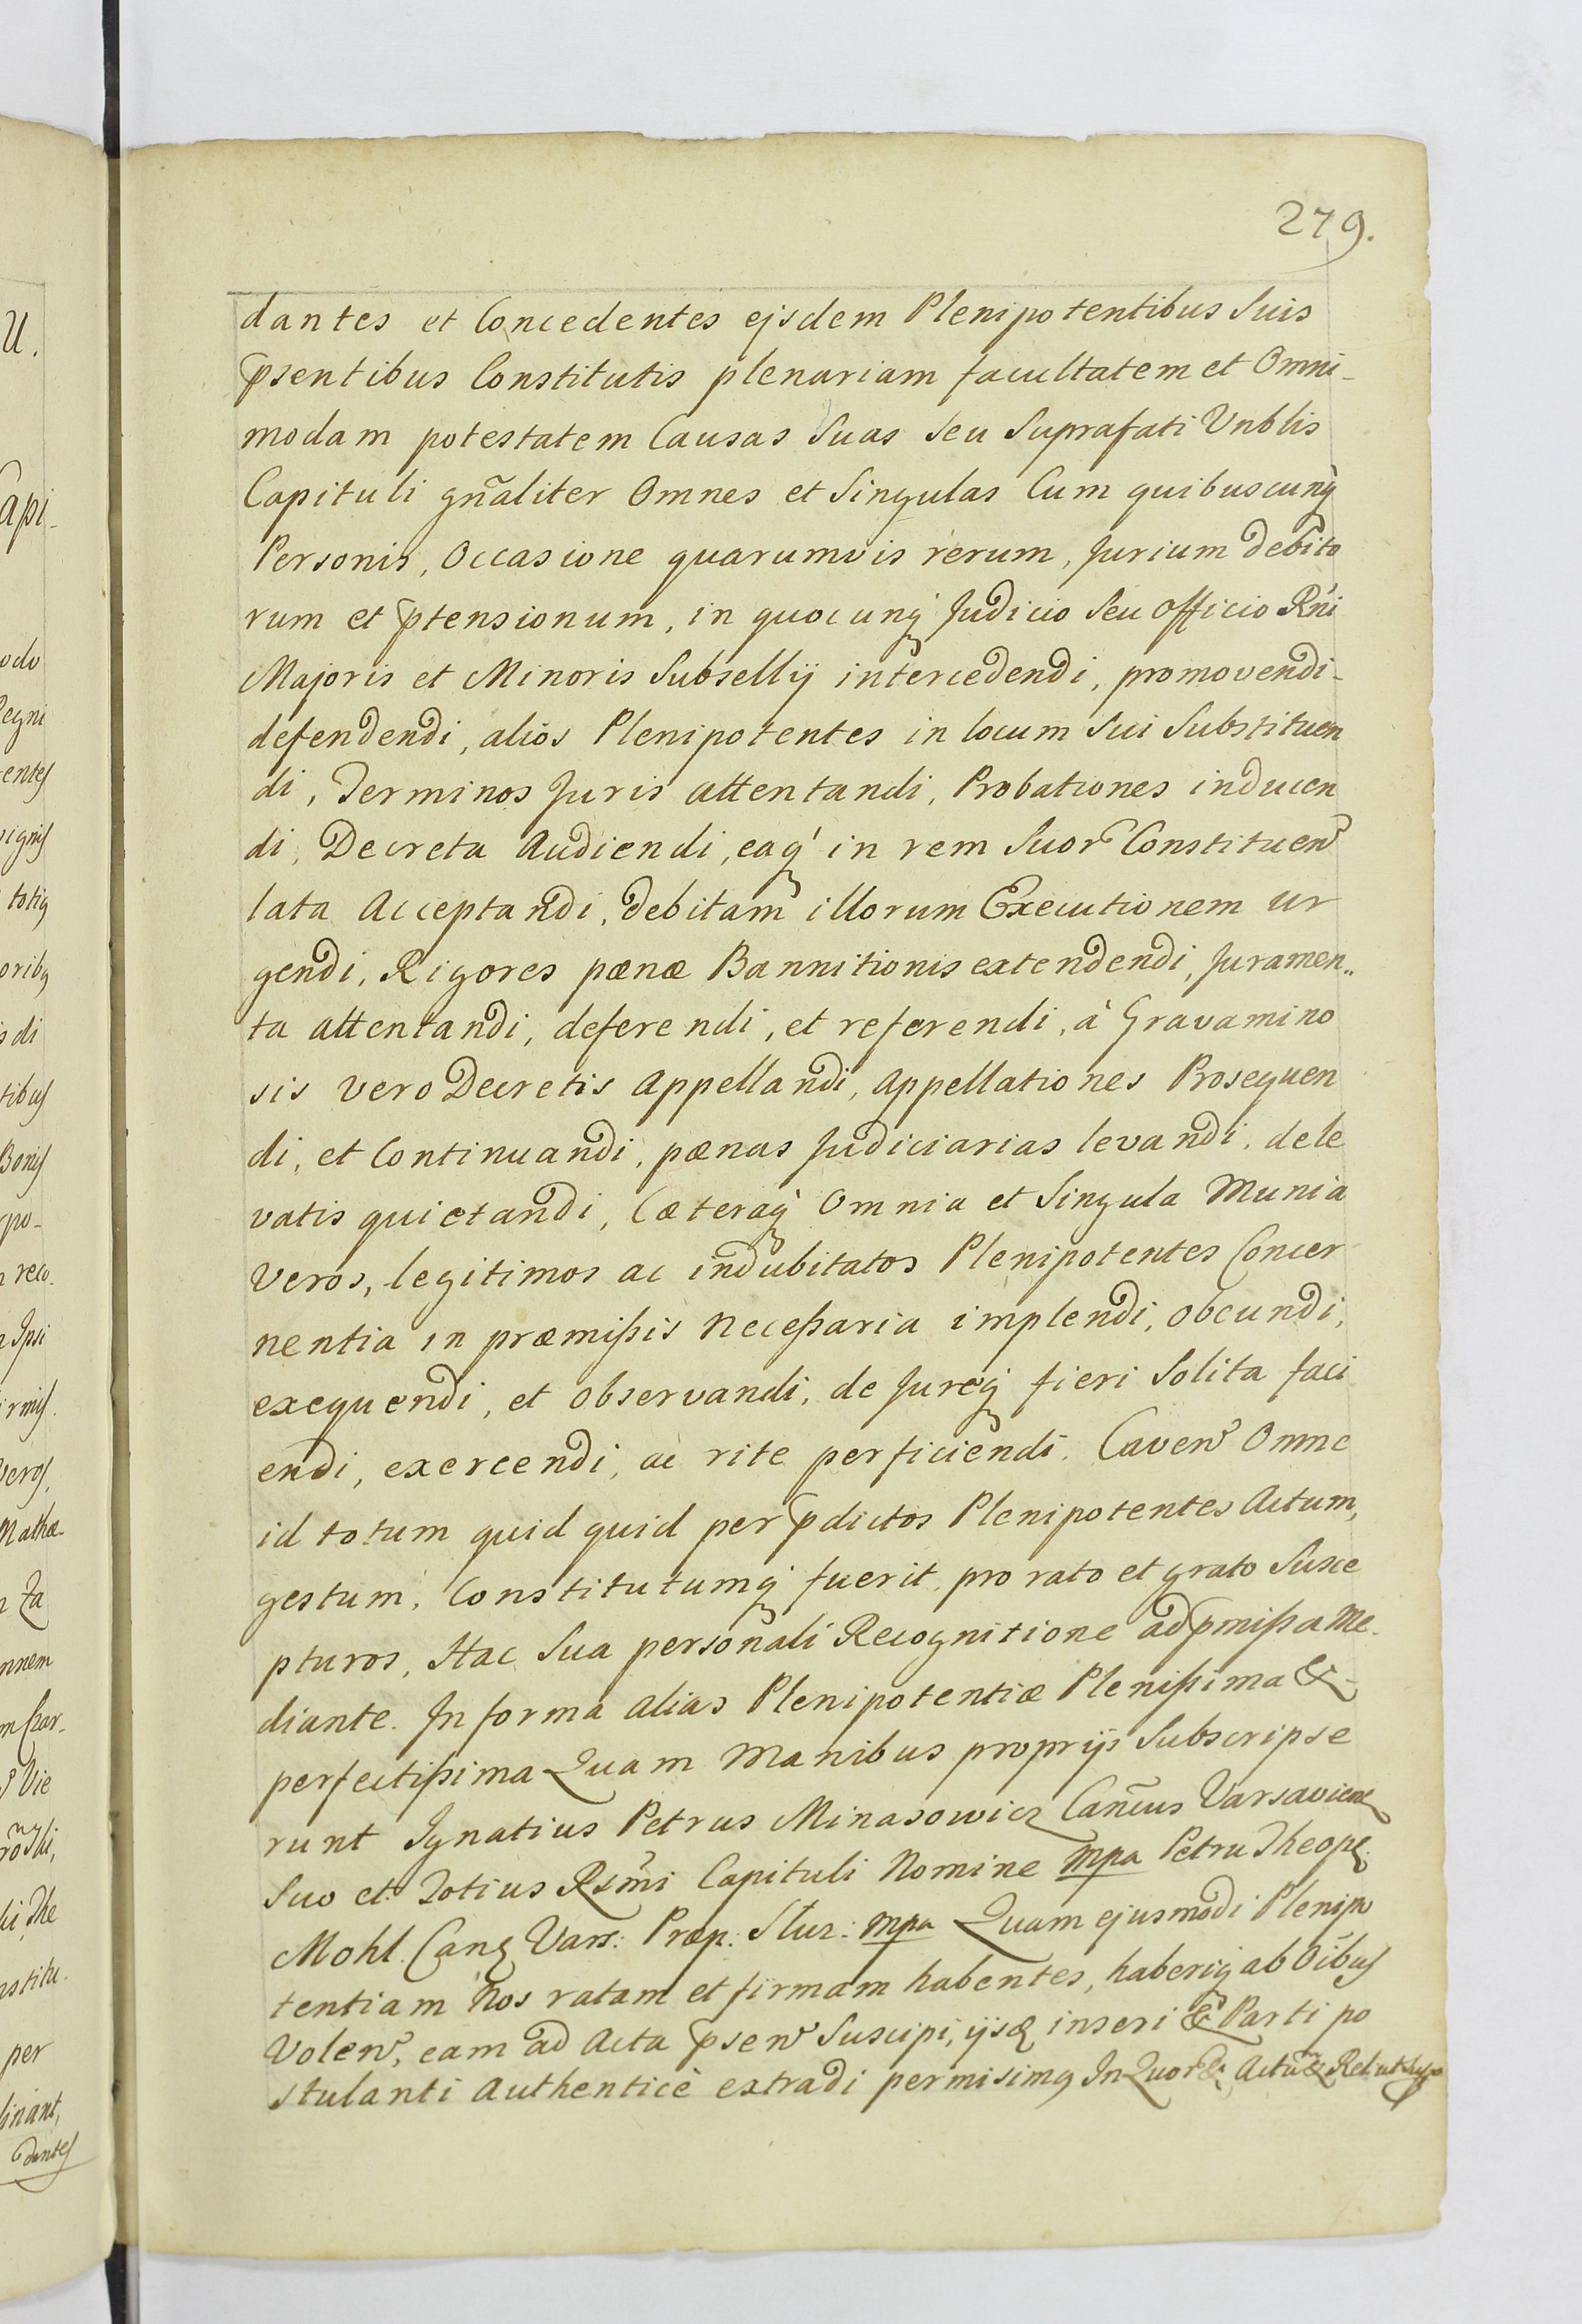 279.
dantes et Concedentes ejsdem Plenipotentibus Suis
pṡentibus Constitutis plenariam facultatem et Omni-
modam potestatem Causas Suas seu Suprafati Vnblis
Capituli gn̄aliter Omnes et Singulas Cum quibuscunq
Personis, Occasione quarumvis rerum, Jurium debito
rum et p̄tensionum, in quocunq Judicio Seu officio Rn̄i
Majoris et Minoris Subsellij intercedendi, promovendi-
defendendi, alios Plenipotentes in locum Sui Substituen
di, Terminos Juris attentandi, Probationes inducen
di, Decreta Audiendi, eaq in rem Suor Constituen
lata Acceptandi, debitam illorum Executionem ur
gendi, Rigores pænæ Bannitionis extendendi, Juramen„
ta attentandi, deferendi, et referendi, à Gravamino
sis vero Decretis Appellandi, Appellationes Prosequen
di, et Continuandi, pænas Judiciarias levandi, dele
vatis quietandi, Cæteraq Omnia et Singula Munia
Veros, legitimos ac indubitatos Plenipotentes Concer
nentia in præmißis Neceßaria implendi, obeundi,
exequendi, et observandi, de Jureq fieri Solita faci
endi, exercendi, ac rite perficiendi. Caven Omne
id totum quid quid per p̄dictos Plenipotentes Actum,
gestum, Constitutumq fuerit, pro rato et grato Susce
pturos, Hac Sua personali Recognitione ad p̄mißa Me-
diante. In forma alias Plenipotentiæ Plenißima &
perfectißima Quam Manibus proprijs Subscripse
runt Ignatius Petrus Minasowicz Can̄cus Varsavien
Suo et Totius Rsm̄i Capituli Nomine mpa Petru Theop
Mohl. Can Vars: Præp: Stuz: mpa Quam ejusmodi Plenipo
tentiam Nos ratam et firmam habentes, haberiq ab Oībus
Volen, eam ad Acta p̄sen Suscipi, ijsq inseri & Parti po
stulanti Authenticè extradi permisimq In Quor & Actū & Rel ut Supa